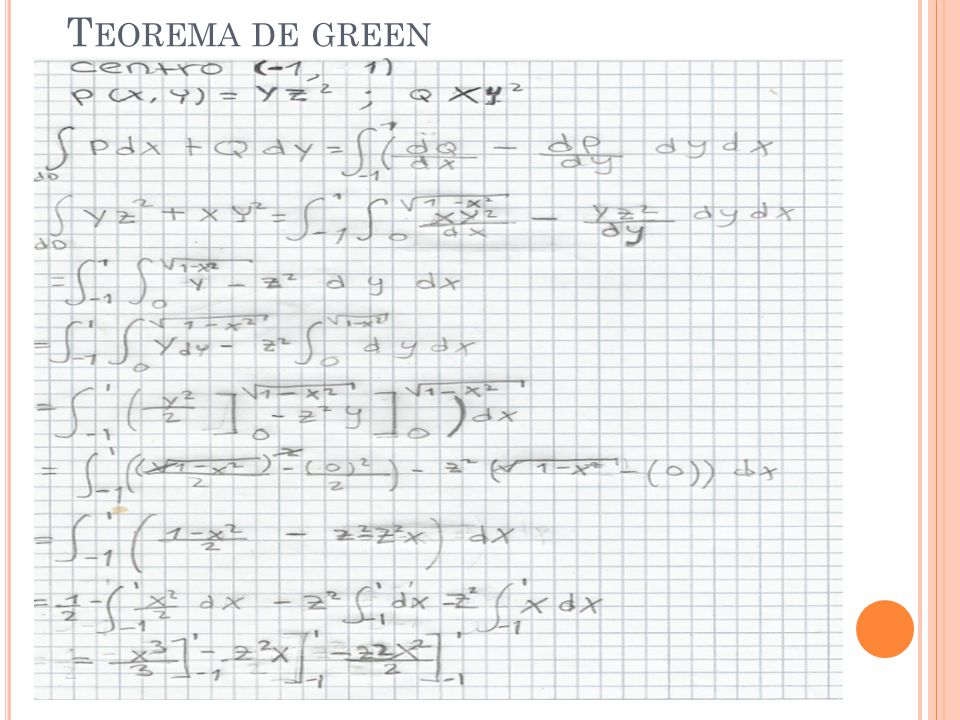 TEOREMA DE GREEN
centro (-1, 1)
P(x, y) = yz² ; Q xy²
∫dD Pdx + Q dy = ∫-1^1 (dQ/dx - dP/dy dy dx
∫dD yz² + xy² = ∫-1^1 ∫0^√(1-x²) xy²/dx - yz²/dy dy dx
= ∫-1^1 ∫0^√(1-x²) y - z² dy dx
= ∫-1^1 ∫0^√(1-x²) ydy - z² ∫0^√(1-x²) dy dx
= ∫-1^1 (y²/2 ]0^√(1-x²) - z² y ]0^√(1-x²) ) dx
= ∫-1^1 ((√(1-x²))²/2 - (0)²/2) - z² (√(1-x²) - (0)) dx
= ∫-1^1 (1-x²/2 - z²-z²x) dx
= 1/2 - ∫-1^1 x²/2 dx - z² ∫-1^1 dx - z² ∫-1^1 x dx
= x³/3 ]-1^1 - z²x ]-1^1 - z2x²/2 ]-1^1